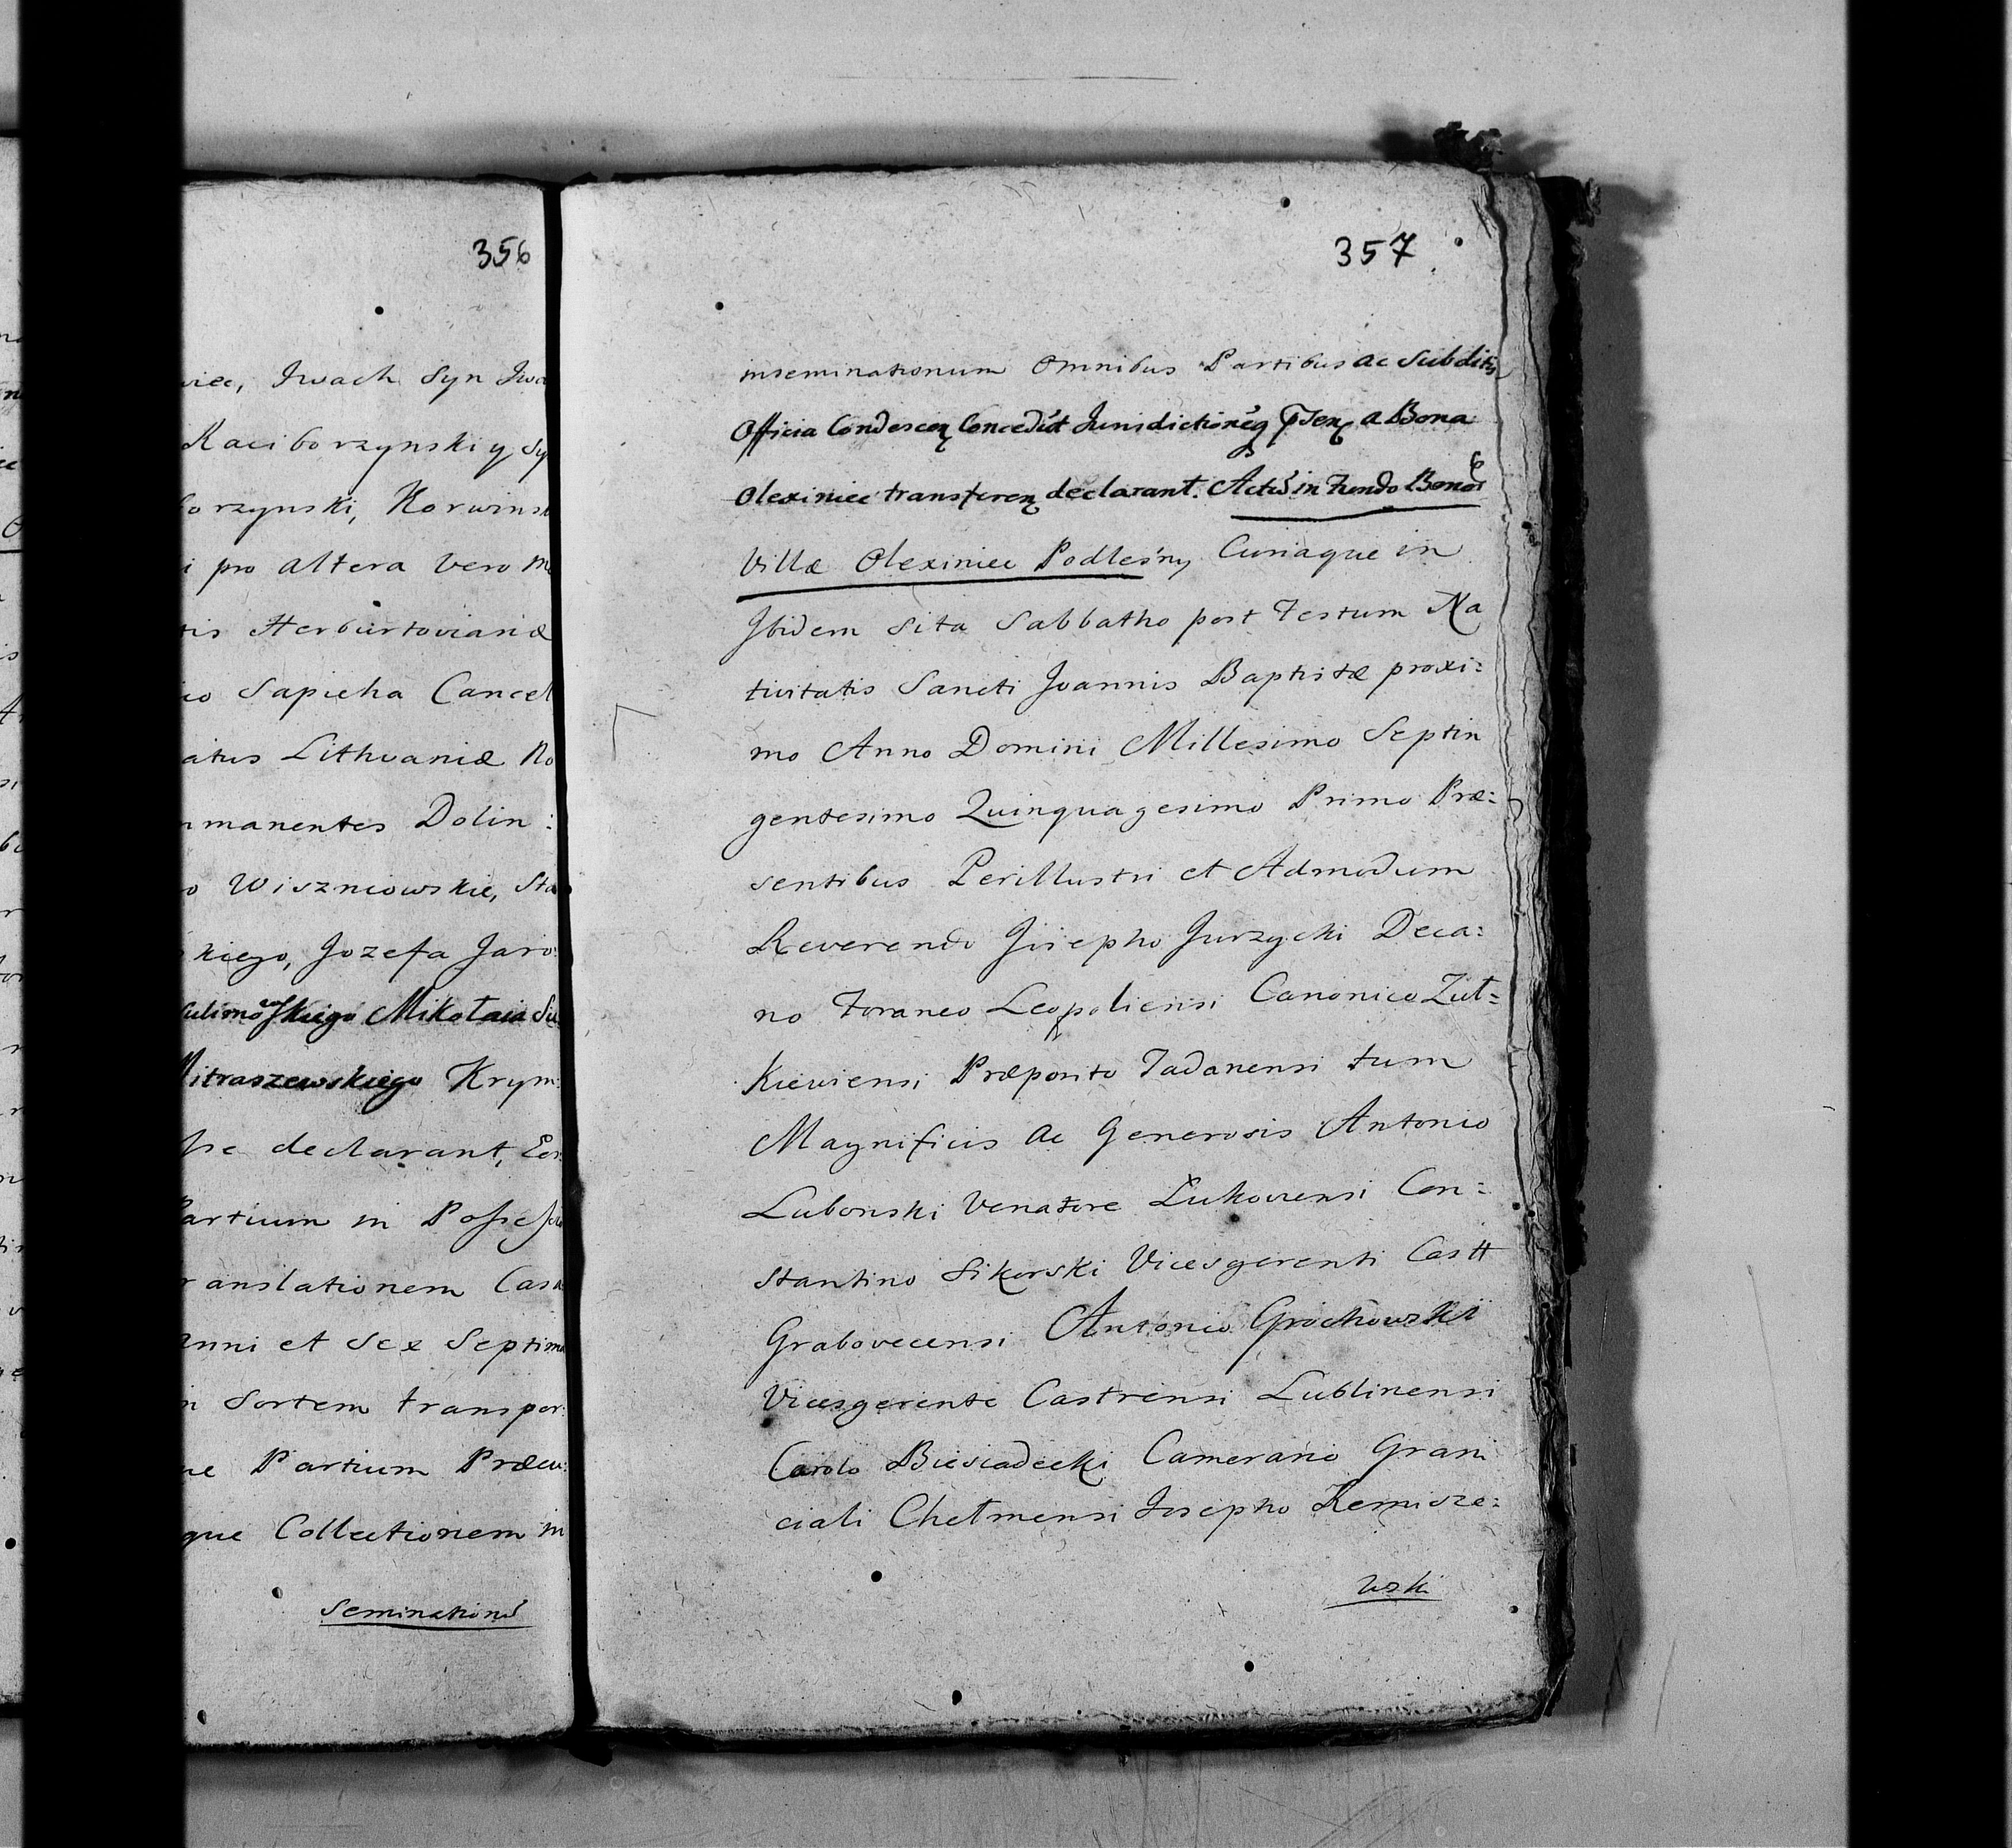 356
Iwach Syn Iwa
Raciborzynski y Sy
borzynski, Korwinsk
i pro altera vero
tis Herburtovianæ
co Sapieha Cancel
atus Lithvaniæ No
manentes Dolin:
o Wiszniowskie, Sta
kiego, Jozefa Jaro
Sulimowskiego Mikołaia Su
Mitraszewskiego Krym:
declarant,
Partium in Possess
ranslationem
anni et Sex Septima
n Sortem transpor:
ue Partium Præeu:
que Collectionem in
Seminationū
357
inseminationum omnibus Partibus ac Subditis
Officia Condescen Concedūt Jurisdictionēq a Bona
Olexiniec transferen declarant. Actū in Fundo Bonor
Villæ Olexiniec Podleśny Curiaque in
Ibidem sita Sabbatho post Festum Na
tivitatis Sancti Joannis Baptistæ proxi:
mo Anno Domini Millesimo Septin
gentesimo Quinquagesimo Primo Præ:
sentibus Perillustri et Admodum
Reverendo Josepho Jurzycki Deca:
no Foraneo Leopoliensi Canonico Zuł:
kieviensi Præposito Jadanensi tum
Magnificis ac Generosis Antonio
Lubonski Venatore Lukoviensi Con:
stantino Sikorski Vicesgerenti Castt
Grabovecensi Antonio Grochowski
Vicesgerente Castrensi Lublinensi
Carolo Biesiadecki Camerario Grani
ciali Chełmensi Josepho Remisze:
wski